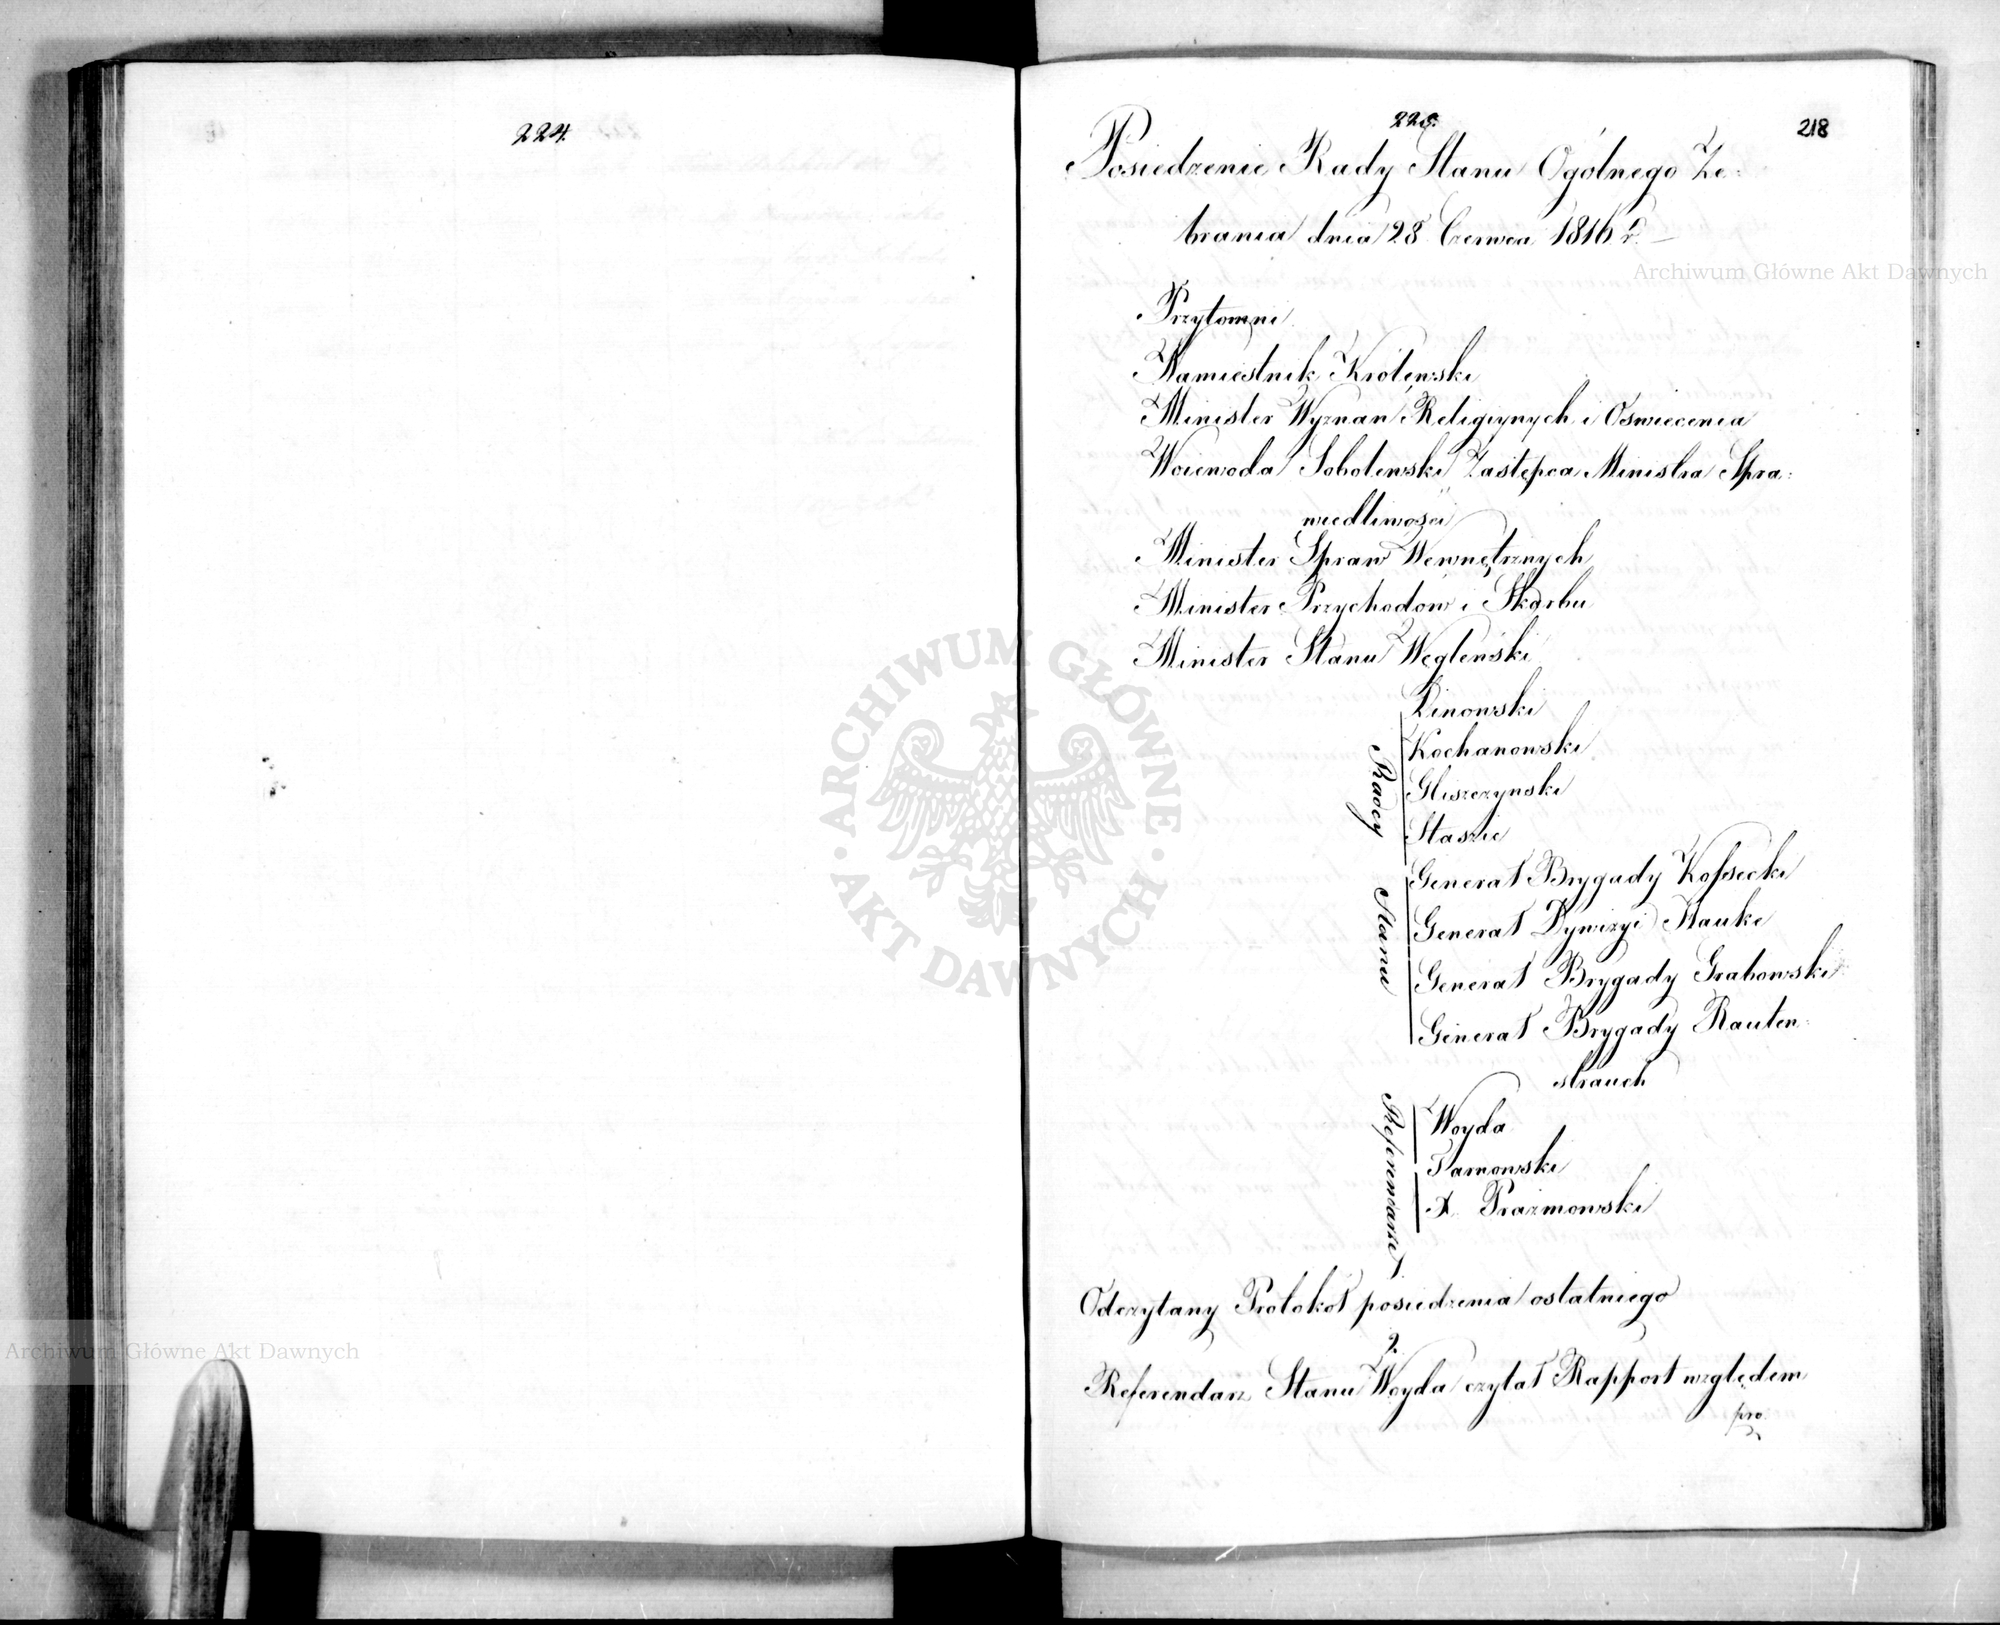 224.
225.
218
Posiedzenie Rady Stanu Ogólnego Ze-
brania dnia 28 Czerwca 1816 r. –
Przytomni
Namiestnik Królewski
Minister Wyznan Religiynych i Oswiecenia
Woiewoda Sobolewski Zastępca Ministra Spra-
wiedliwości
Minister Spraw Wewnętrznych
Minister Przychodow i Skarbu
Minister Stanu Węgleński
Radcy Stanu
Linowski
Kochanowski
Gliszczynski
Staszic
Generał Brygady Kossecki
Generał Dywizyi Hauke
Generał Brygady Grabowski
Generał Brygady Rauten-
strauch
Referendarze
Woyda
Tarnowski
X. Prazmowski
1.
Odczytany Protokół posiedzenia ostatniego
2.
Referendarz Stanu Woyda czytał Rapport względem
pro-
Archiwum Główne Akt Dawnych
Archiwum Główne Akt Dawnych
ARCHIWUM GŁÓWNE
AKT DAWNYCH